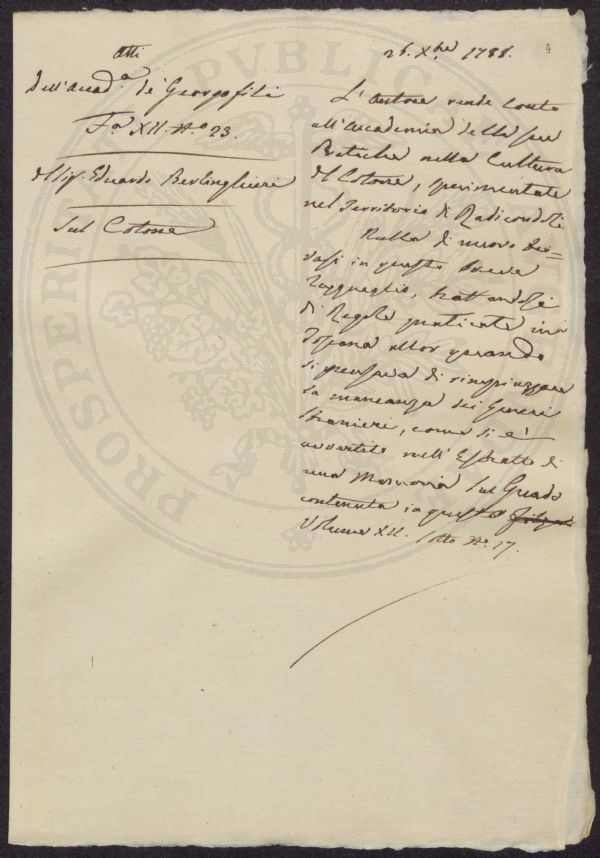 Atti
Dell'Accad.a de' Georgofili
F.a XII. N.o 23.
del Sig. Eduardo Berlinghieri
Sul Cotone
26. Xbre 1788.
L'Autore rende conto
all'Accademia delle sue
Pratiche nella Cultura
del Cotone, sperimentate
nel Territorio di Radicondoli.
Nulla di nuovo tro-
vasi in questo breve
ragguaglio, trattandosi
di Regole praticate in
Toscana allor quando
si pensava di rimpiazzare
la mancanza dei Generi
stranieri, come si è
avvertito nell'Estratto di
una Memoria sul Guado
contenuta in questo
Volume XII. sotto N.o 17.
PROSPERI PUBLIC